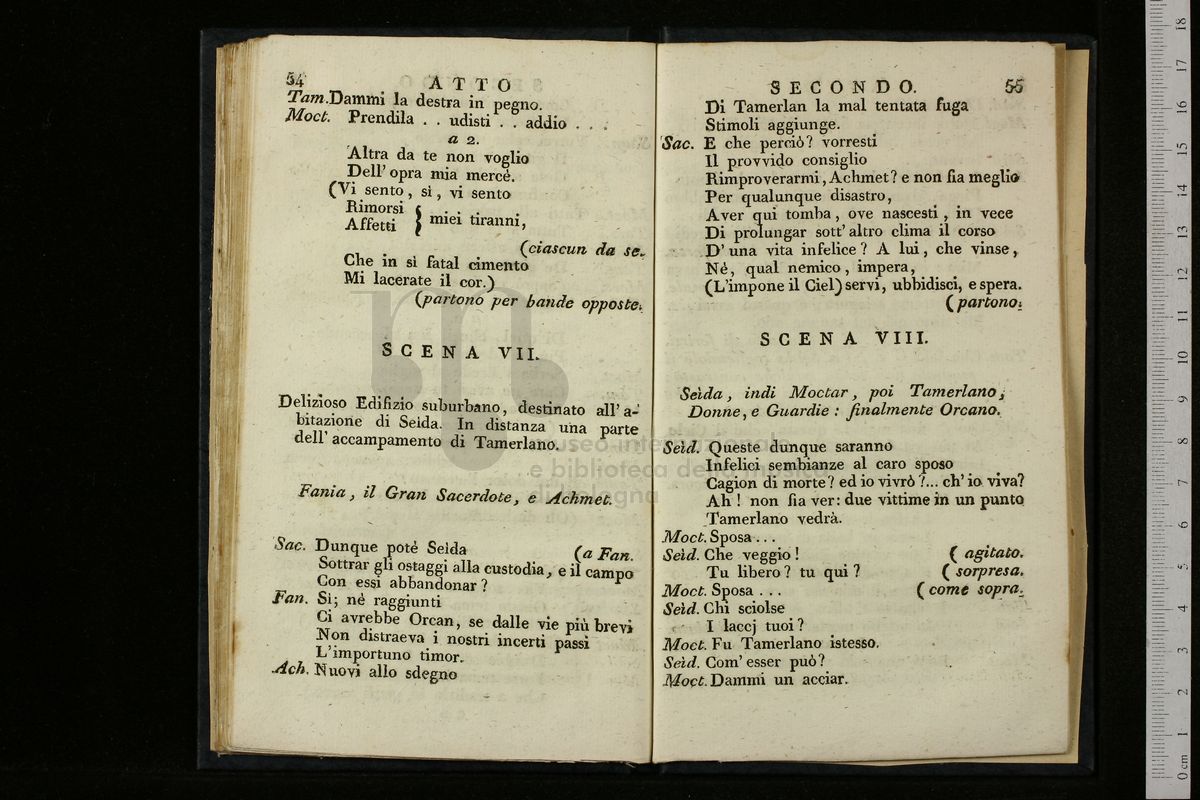 54
ATTO
Tam. Dammi la destra in pegno.
Moct. Prendila . . udisti . . addio . . .
a 2.
Altra da te non voglio
Dell' opra mia mercé.
(Vi sento, sì, vi sento
Rimorsi
Affetti } miei tiranni,
(ciascun da se.
Che in sì fatal cimento
Mi lacerate il cor.)
(partono per bande opposte.
SCENA VII.
Delizioso Edifizio suburbano, destinato all' a-
bitazione di Seida. In distanza una parte
dell' accampamento di Tamerlano.
Fania, il Gran Sacerdote, e Achmet.
Sac. Dunque potè Seìda (a Fan.
Sottrar gli ostaggi alla custodia, e il campo
Con essi abbandonar?
Fan. Sì; nè raggiunti
Ci avrebbe Orcan, se dalle vie più brevi
Non distraeva i nostri incerti passi
L'importuno timor.
Ach. Nuovi allo sdegno
SECONDO. 55
Di Tamerlan la mal tentata fuga
Stimoli aggiunge.
Sac. E che perciò? vorresti
Il provvido consiglio
Rimproverarmi, Achmet? e non fia meglio
Per qualunque disastro,
Aver qui tomba, ove nascesti, in vece
Di prolungar sott' altro clima il corso
D' una vita infelice? A lui, che vinse,
Nè, qual nemico, impera,
(L'impone il Ciel) servi, ubbidisci, e spera.
(partono.
SCENA VIII.
Seìda, indi Moctar, poi Tamerlano,
Donne, e Guardie: finalmente Orcano.
Seìd. Queste dunque saranno
Infelici sembianze al caro sposo
Cagion di morte? ed io vivrò?... ch' io viva?
Ah! non fia ver: due vittime in un punto
Tamerlano vedrà.
Moct. Sposa...
Seìd. Che veggio! ( agitato.
Tu libero? tu qui? ( sorpresa.
Moct. Sposa ... ( come sopra.
Seìd. Chi sciolse
I laccj tuoi?
Moct. Fu Tamerlano istesso.
Seìd. Com' esser può?
Moct. Dammi un acciar.
museo internazionale
e biblioteca della musica
di bologna
0 cm 1 2 3 4 5 6 7 8 9 10 11 12 13 14 15 16 17 18